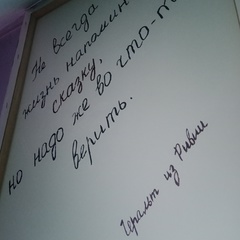 Не всегда
жизнь напомин
сказку,
но надо же во что-т
верить.
Геральт из Ривии